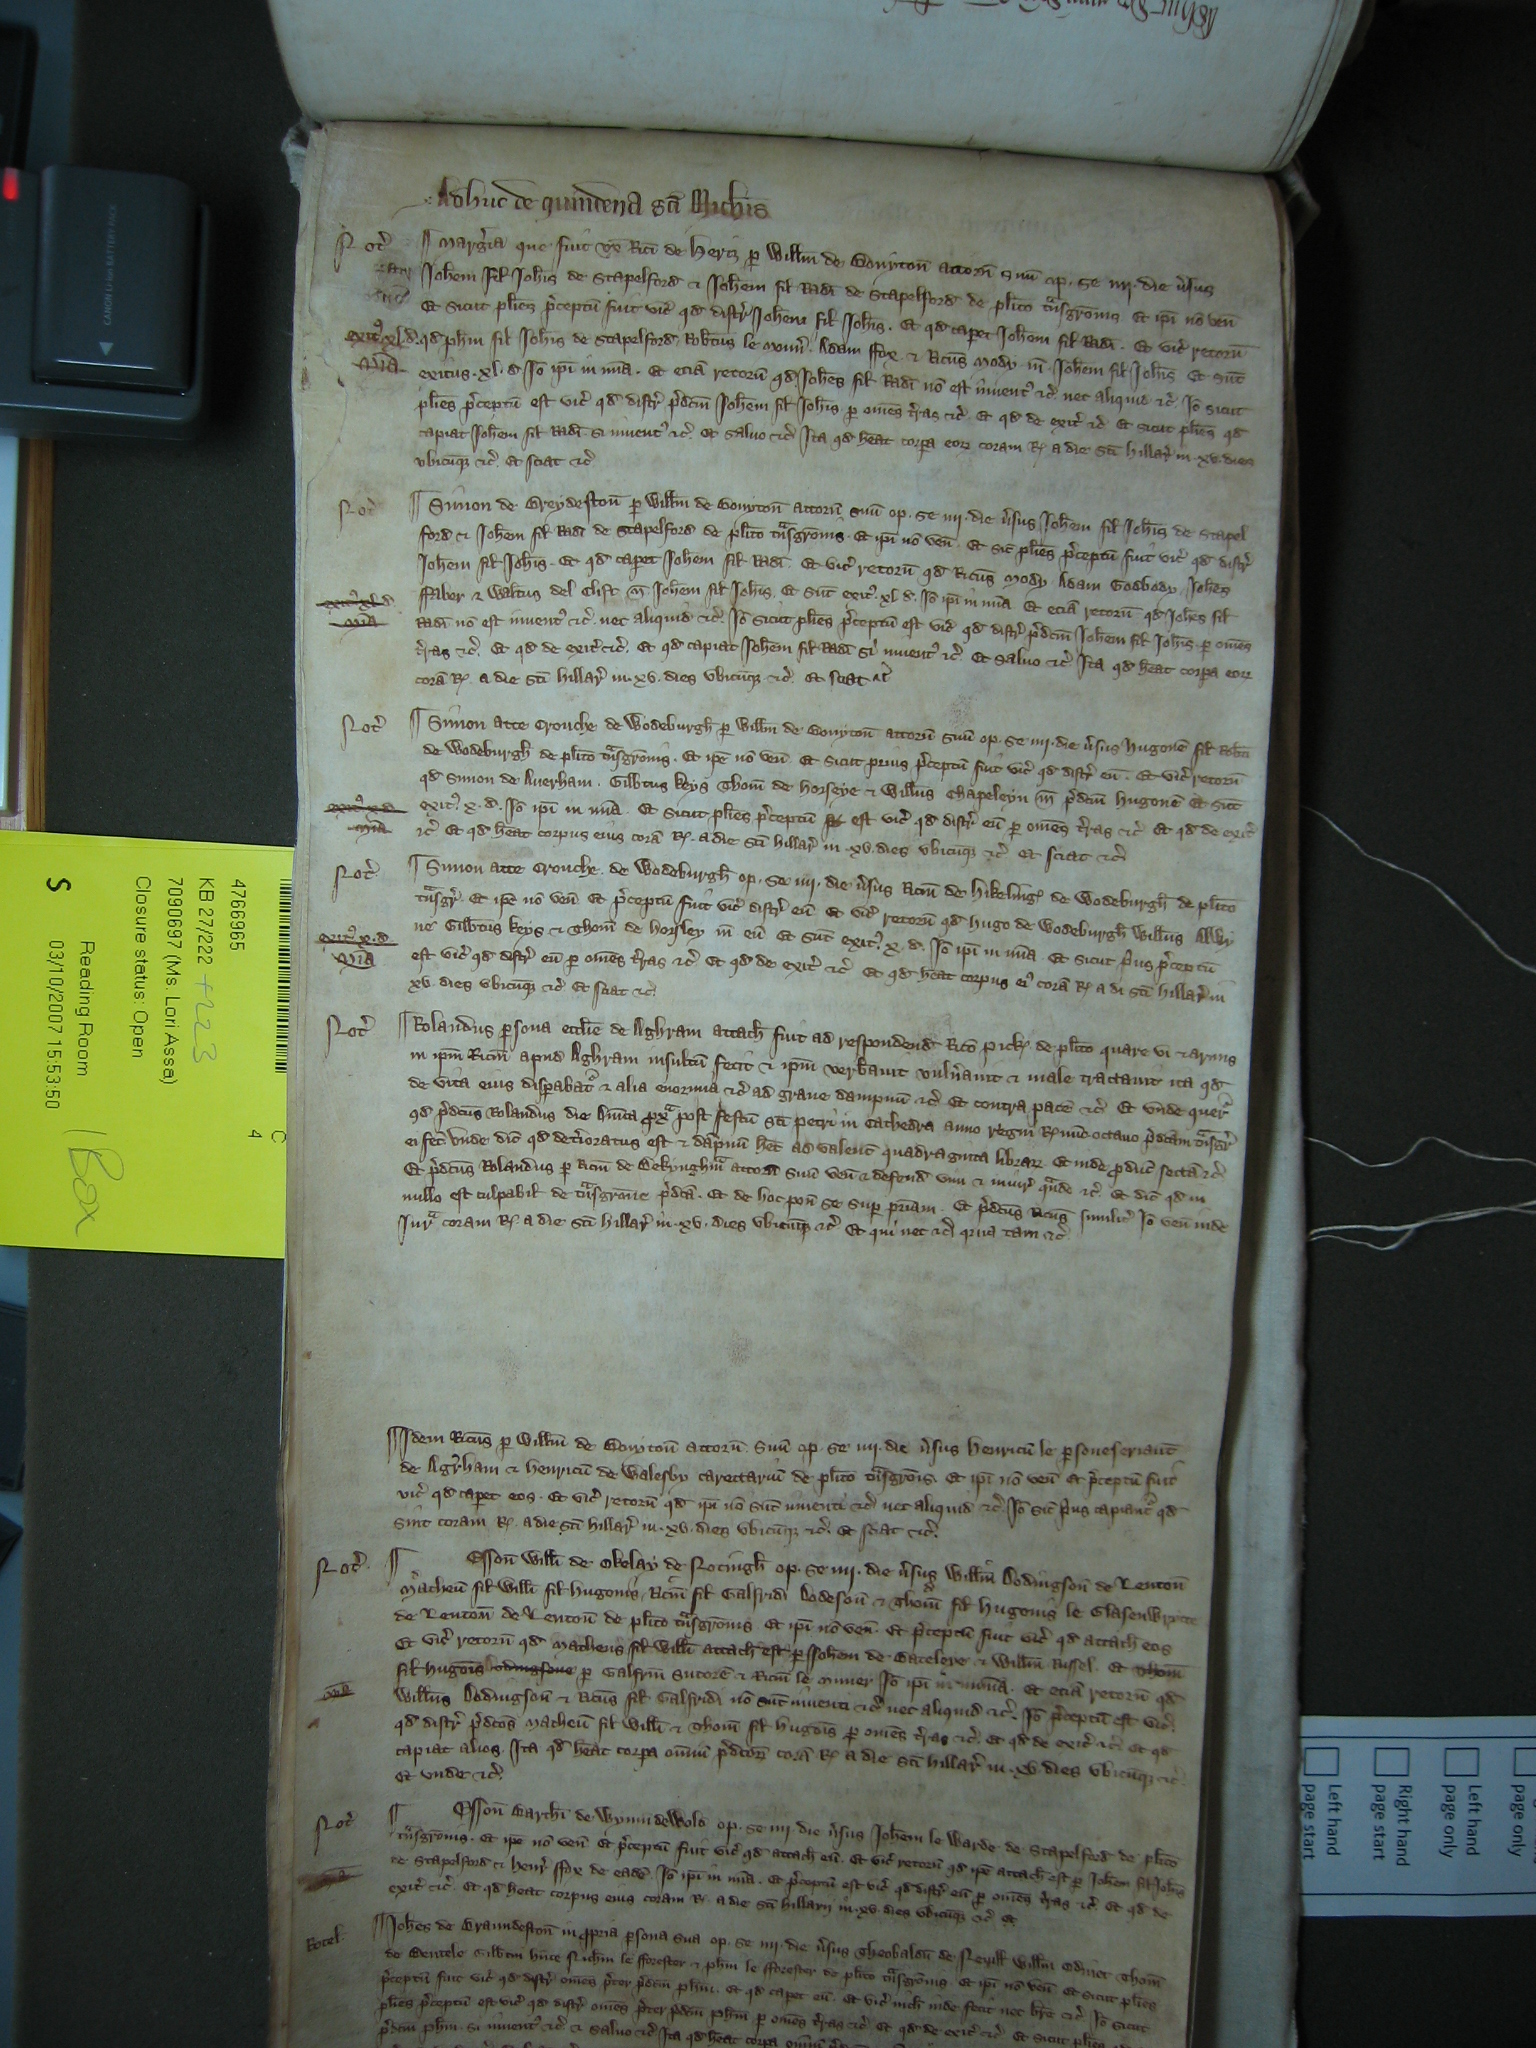 Adhuc de quindena sci Michis
Not
Margia que fuit ux Rici de Hertz p Willm de Bonyton attorn suu op. se iiii. die vsus
Johem fil Johis de Stapelford & Johem fil Radi de Stapelford de plito tnsgronis Et ipi no ven
Et sicut plies pceptu fuit vic qd distr Johem fil Johis. Et qd capet Johem fil Radi. Et vic retorn
exit xl d.
qd Phm fil Johis de Stapelford Robtus le Adam ffox & Ricus Mody m Johem fil Johis Et sunt
mia
exitus. xl. d Io ipi in mia. Et ecia retorn qd Johes fil Radi no est invent &c nec aliquid &c. Io sicut
plies pceptu est vic qd distr pdcm Johem fil Johis p omes tras &c. Et qd de exit &c Et sicut plies qd
capiat Johem fil Radi si invent &c. Et salvo &c Ita qd heat corpa eor coram R a die sci Hillar in xv dies
ubicuq &c. Et sciat &c
Not
Simon de Breydeston p Willm de Bonyton attorn suu op. se iiii. die vsus Johem fil Johis de Stapel
ford & Johem fil Radi de Stapelford de plito tnsgronis. Et ipi no ven. Et sic plies pceptu fuit vic qd distr
Johem fil Johis. Et qd capet Johem fil Radi. Et vic retorn qd Ricus Mody Adam Godbody, Johes
exit xl d
ffaber & Waltus del Clift m Johem fil Johis. Et sunt exit. xl d. Io ipi in mia Et ecia retorn qd Johes fil
mia
Radi no est invent &c. nec aliquid &c. Io sicut plies pceptu est vic qd distr pdcm Johem fil Johis. p omes
tras &c. Et qd de exit &c. Et qd capiat Johem fil Radi si invent &c. Et salvo &c Ita qd heat corpa eor
cora R. a die sci Hillar in xv. dies ubicuq &c. Et sciat &c
Not
Simon atte Crouche de Wodeburgh p Willm de Bonyton attorn suu op. se iiii. die vsus Hugone fil Robti
de Wodeburgh de plito tnsgronis. Et ipe no ven. Et sicut prius pceptu fuit vic qd distr eu. Et vic retorn
qd Simon de Averham. Gilbtus Keys Thom de Horseye & Willus Chapeleyn m pdcm Hugone Et sunt
exit x d
exit. x. d. Io ipi in mia. Et sicut plies pceptu est vic qd distr eu p omes tras &c Et qd de exit
mia
&c Et qd heat corpus eius cora R. a die sci Hillar in xv. dies ubicuq &c Et sciat &c
Not
Simon atte Crouche. de Wodeburgh op. se iiii. die vsus Ricm de Hikeling de Wodeburgh de plito
tnsgr. Et ipe no ven Et pceptu fuit vic distr eu Et vic retorn qd Hugo de Wodeburgh Willus Alwy
ne Gilbtus Keys & Thom de Horsley m eu Et sunt exit. x. d. Io ipi in mia. Et sicut pus pceptu
exit x. d
est vic qd distr eu p omes tras &c Et qd de exit &c Et qd heat corpus ei cora R a di sci Hillar in
mia
xv. dies ubicuq &c Et sciat &c.
Not
Rolandus psona ecclie de Aghram attach fuit ad respondend Rico Pick de plito quare vi & armis
in ipm Ricm apud Aghram insultu fecit & ipm verbavit vulnavit & male tractavit ita qd
de vita eius dispabat & alia enormia &c ad grave dampnu &c Et contra pace &c Et unde quer
qd pdcus Rolandus die pxa post festum sci Petri in Cathedra anno regni R nuc octavo pdcam tnsgr
ei fec unde dic qd deterioratus est & dapnu het ad valenc quadraginta librar Et inde pduc secta &c
Et pdcus Rolandus p Ricm de Bekynghm attorn suu ven & defend vim & iniur qnde &c. Et dic qd in
nullo est culpabil de tnsgrone pdca. Et de hoc pon se sup priam. Et pdcus Ricus similit Io ven inde
Jur coram R. a die sci Hillar in. xv. dies ubicuq &c Et qui nec &c quia tam &c
Idem Ricus p Willm de Bonyton attorn. suu op. se iiii. die vsus Henricu le psonesseriant
de Agrham & Henricu de Walesby carectariu de plito tnsgronis. Et ipi no ven Et pceptu fuit
vic qd capet eos. Et vic retorn qd ipi no sunt inventi &c nec aliquid &c. Io sic pus capiant qd
sint coram R. a die sci Hillar in. xv. dies ubicuq &c. Et sciat &c.
Not
Esson Willi de Okelay de Notingh op. se iiii. die vsus Willm Dodingson de Lenton
Matheu fil Willi fil Hugonis, Ricm fil Galfridi Dodeson & Thom fil Hugonis le Glasenwricte
de Lenton de Lenton de plito tnsgronis Et ipi no ven. Et pceptu fuit vic qd attach eos
Et vic retorn qd Matheus fil Willi attach est p Johem de Batelere & Willm Russel. Et Thom
fil Hugois p Galfrm Sutore & Ricm le Muner Io ipi in mia. Et ecia retorn qd
mia
Willus Dodingson & Ricus fil Galfridi no sunt inventi &c nec aliquid &c. Io pceptu est vic.
qd distr pdcos Matheu fil Willi & Thom fil Hugois p omes tras &c. Et qd de exit &c Et qd
capiat alios. Ita qd heat corpa omiu pdcor cora R a die sci Hillar in. xv dies ubicuq &c
Et unde &c.
Not
Esson Barthi de Wymudewold op. se iiii. die vsus Johem le Warde de Stapelford de plito
tnsgronis. Et ipe no ven Et pceptu fuit vic qd attach eu. Et vic retorn qd ipe attach est p Johem fil Johis
de Stapelford & Henr ffox de eade. Io ipi in mia. Et pceptu est vic qd distr eu p omes tras &c. Et qd de
exit &c. Et qd heat corpus eius coram R. a die sci Hillarii in. xv. dies ubicuq &c Et
Rotel
Johes de Braundeston in ppria psona sua op. se iiii. die vsus Theobaldu de Nevill Willm Odinet Thom
de Bentele Gilbtm Nichm le fforester & Phm le fforester de plito tnsgronis. Et ipi no ven Et sicut plies
pceptu fuit vic qd distr omes pter pdcm Phm. Et qd capet eu. Et vic nich inde fecit nec bre &c Io sicut
plies pceptu est vic qd distr omes pter pdcm Phm p omes tras &c Et qd de exit &c Et sicut plies
pdcm Phm. si invent &c & salvo &c Ita qd heat corpa omiu
CANON Li-ion BATTERY PACK
4766965
KB 27/222 + 223
7090697 (Ms. Lori Assa)
Closure status: Open
C
4
Reading Room
S
03/10/2007 15:53:50
1 Box
page only
Left hand
page only
Right hand
page start
Left hand
page start